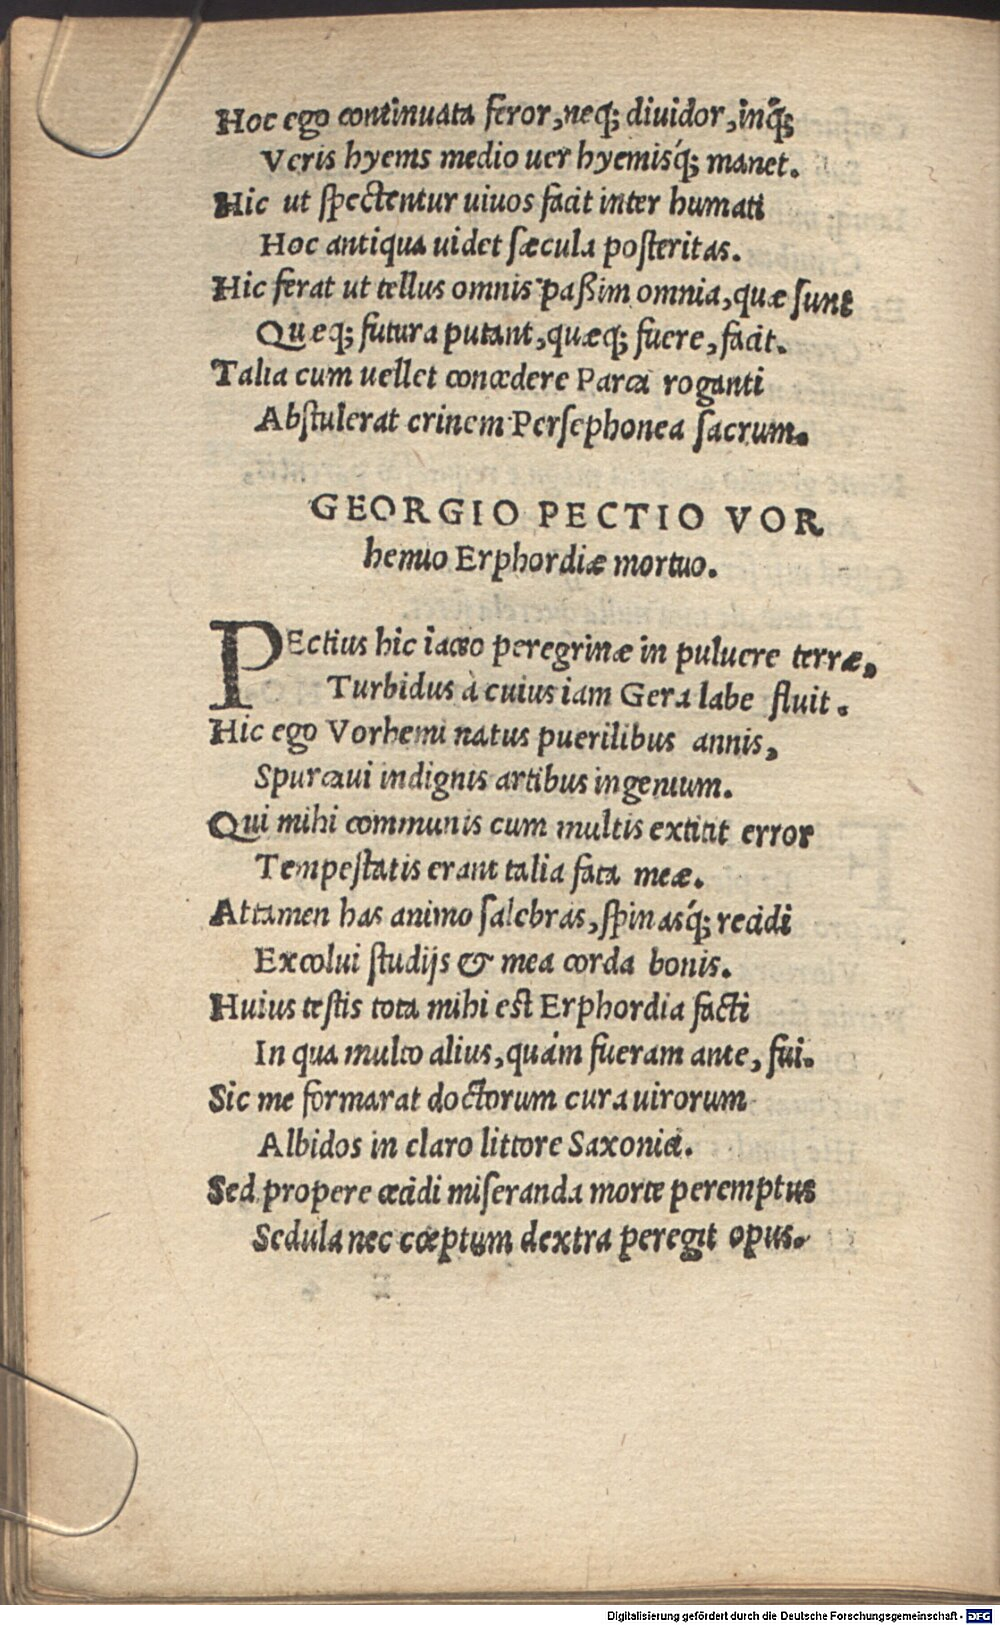 Hoc ego continuata feror, neq; diuidor, inq́;
Veris hyems medio uer hyemisq́; manet.
Hic ut spectentur uiuos facit inter humati
Hoc antiqua uidet sæcula posteritas.
Hic ferat ut tellus omnis paßim omnia, quæ sunt
Quæq; futura putant, quæq; fuere, facit.
Talia cum uellet concedere Parca roganti
Abstulerat crinem Persephonea sacrum.
GEORGIO PECTIO VOR
hemio Erphordiæ mortuo.
PEctius hic iaceo peregrinæ in puluere terræ,
Turbidus à cuius iam Gera labe fluit.
Hic ego Vorhemi natus puerilibus annis,
Spurcaui indignis artibus ingenium.
Qui mihi communis cum multis extitit error
Tempestatis erant talia fata meæ.
Attamen has animo salebras, spinasq́; recidi
Excolui studijs & mea corda bonis.
Huius testis tota mihi est Erphordia facti
In qua multo alius, quàm fueram ante, fui.
Sic me formarat doctorum cura uirorum
Albidos in claro littore Saxonici.
Sed propere cecidi miseranda morte peremptus
Sedula nec cœptum dextra peregit opus.
Digitalisierung gefördert durch die Deutsche Forschungsgemeinschaft - DFG